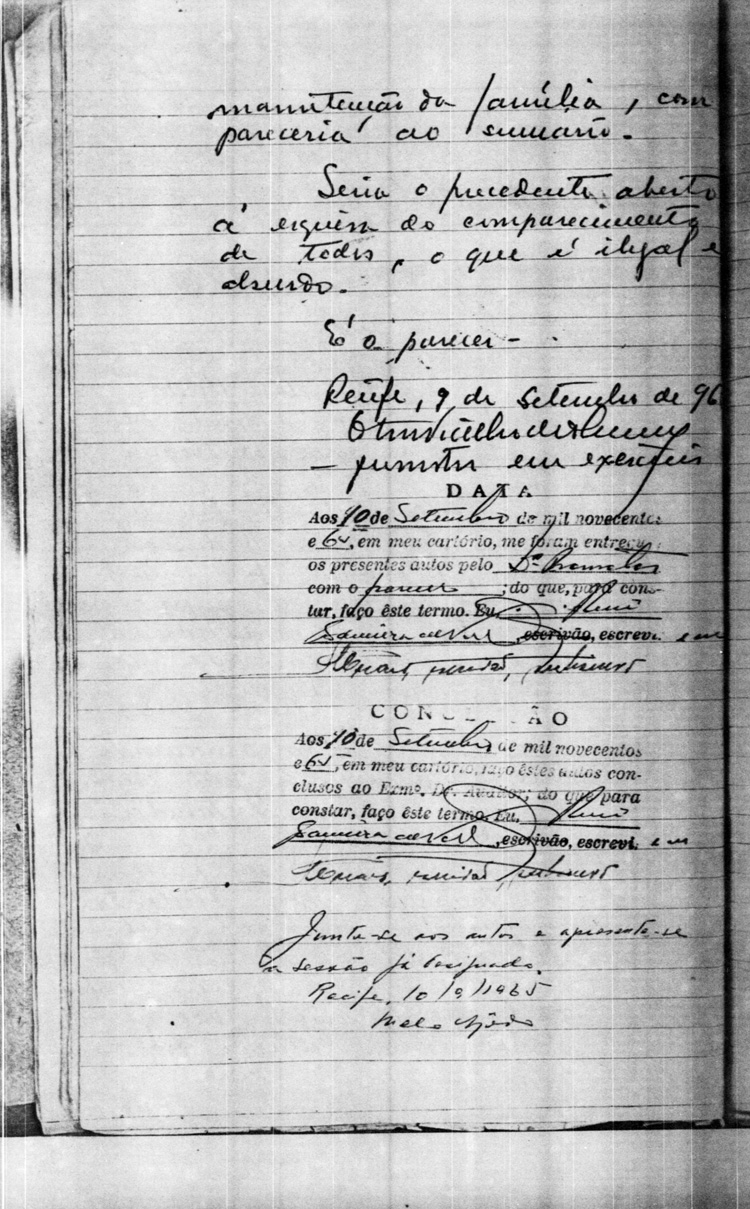 manutenção da família, com
pareceria ao sumário.
Seria o precedente aberto
á do comparecimento
de todos, o que é ilegal e
absurdo.
É o parecer -
Recife, 9 de setembro de 96
- promotor em exercício
DATA
Aos 10 de Setembro de mil novecentos
e 65, em meu cartório, me foram entregu
os presentes autos pelo Dr. Promotor
com o parecer ; do que, para cons-
tar, faço êste termo. Eu,
, escrivão, escrevi. e eu
escrivão, subscrevo
CONCLUSÃO
Aos 10 de Setembro de mil novecentos
e 65, em meu cartório, faço êstes autos con-
clusos ao Exmo. Dr. Auditor; do que para
constar, faço êste termo. Eu,
, escrivão, escrevi. e eu
escrivão, subscrevo
Junte-se aos autos e apresente-se
a sessão já designada.
Recife, 10/9/1965